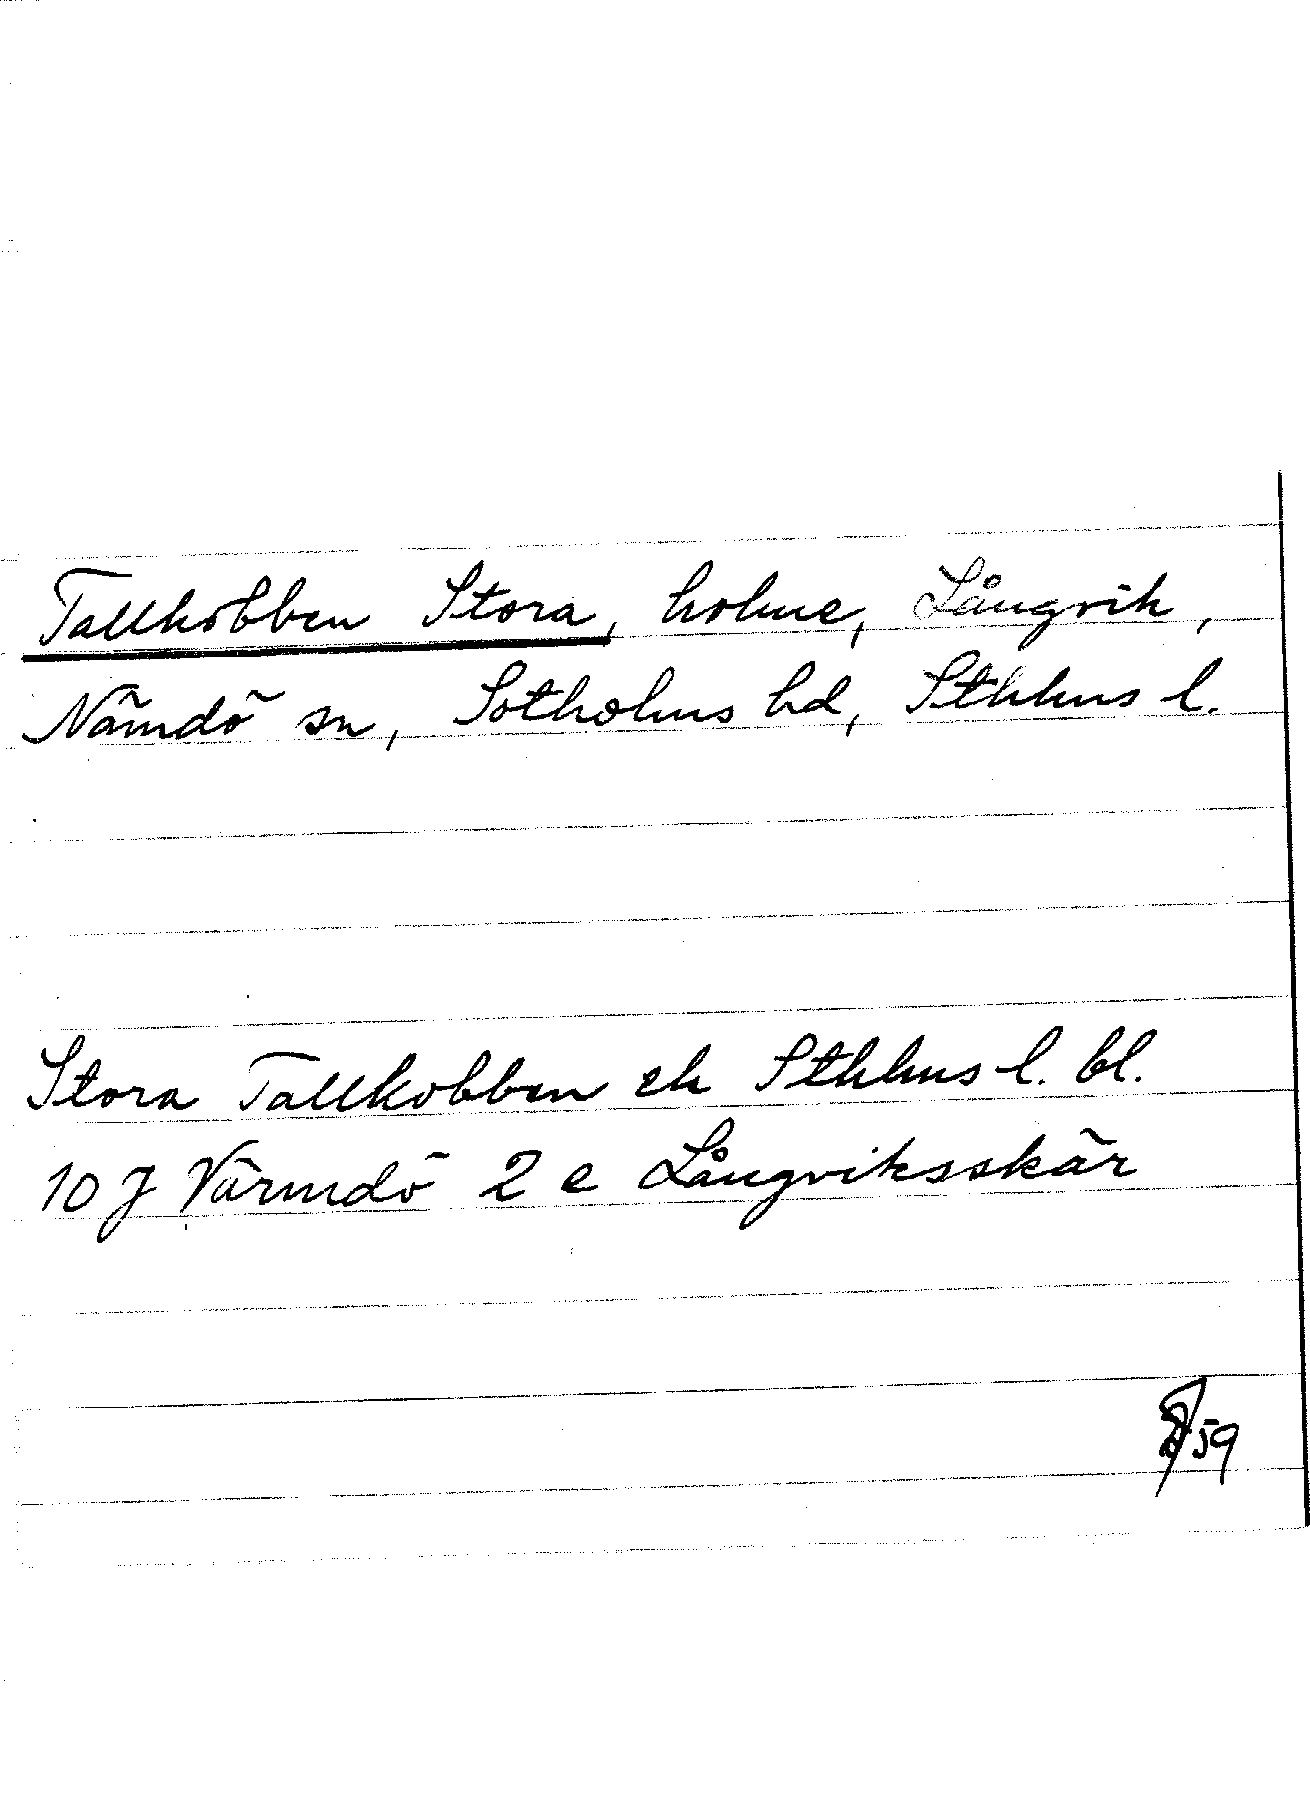 Tallkobben Stora, holme, Långvik,
Nämdö sn, Sotholms hd, Sthlms l.
Stora Tallkobben ek Sthlms l. bl.
10 J Värmdö 2 e Långviksskär
59